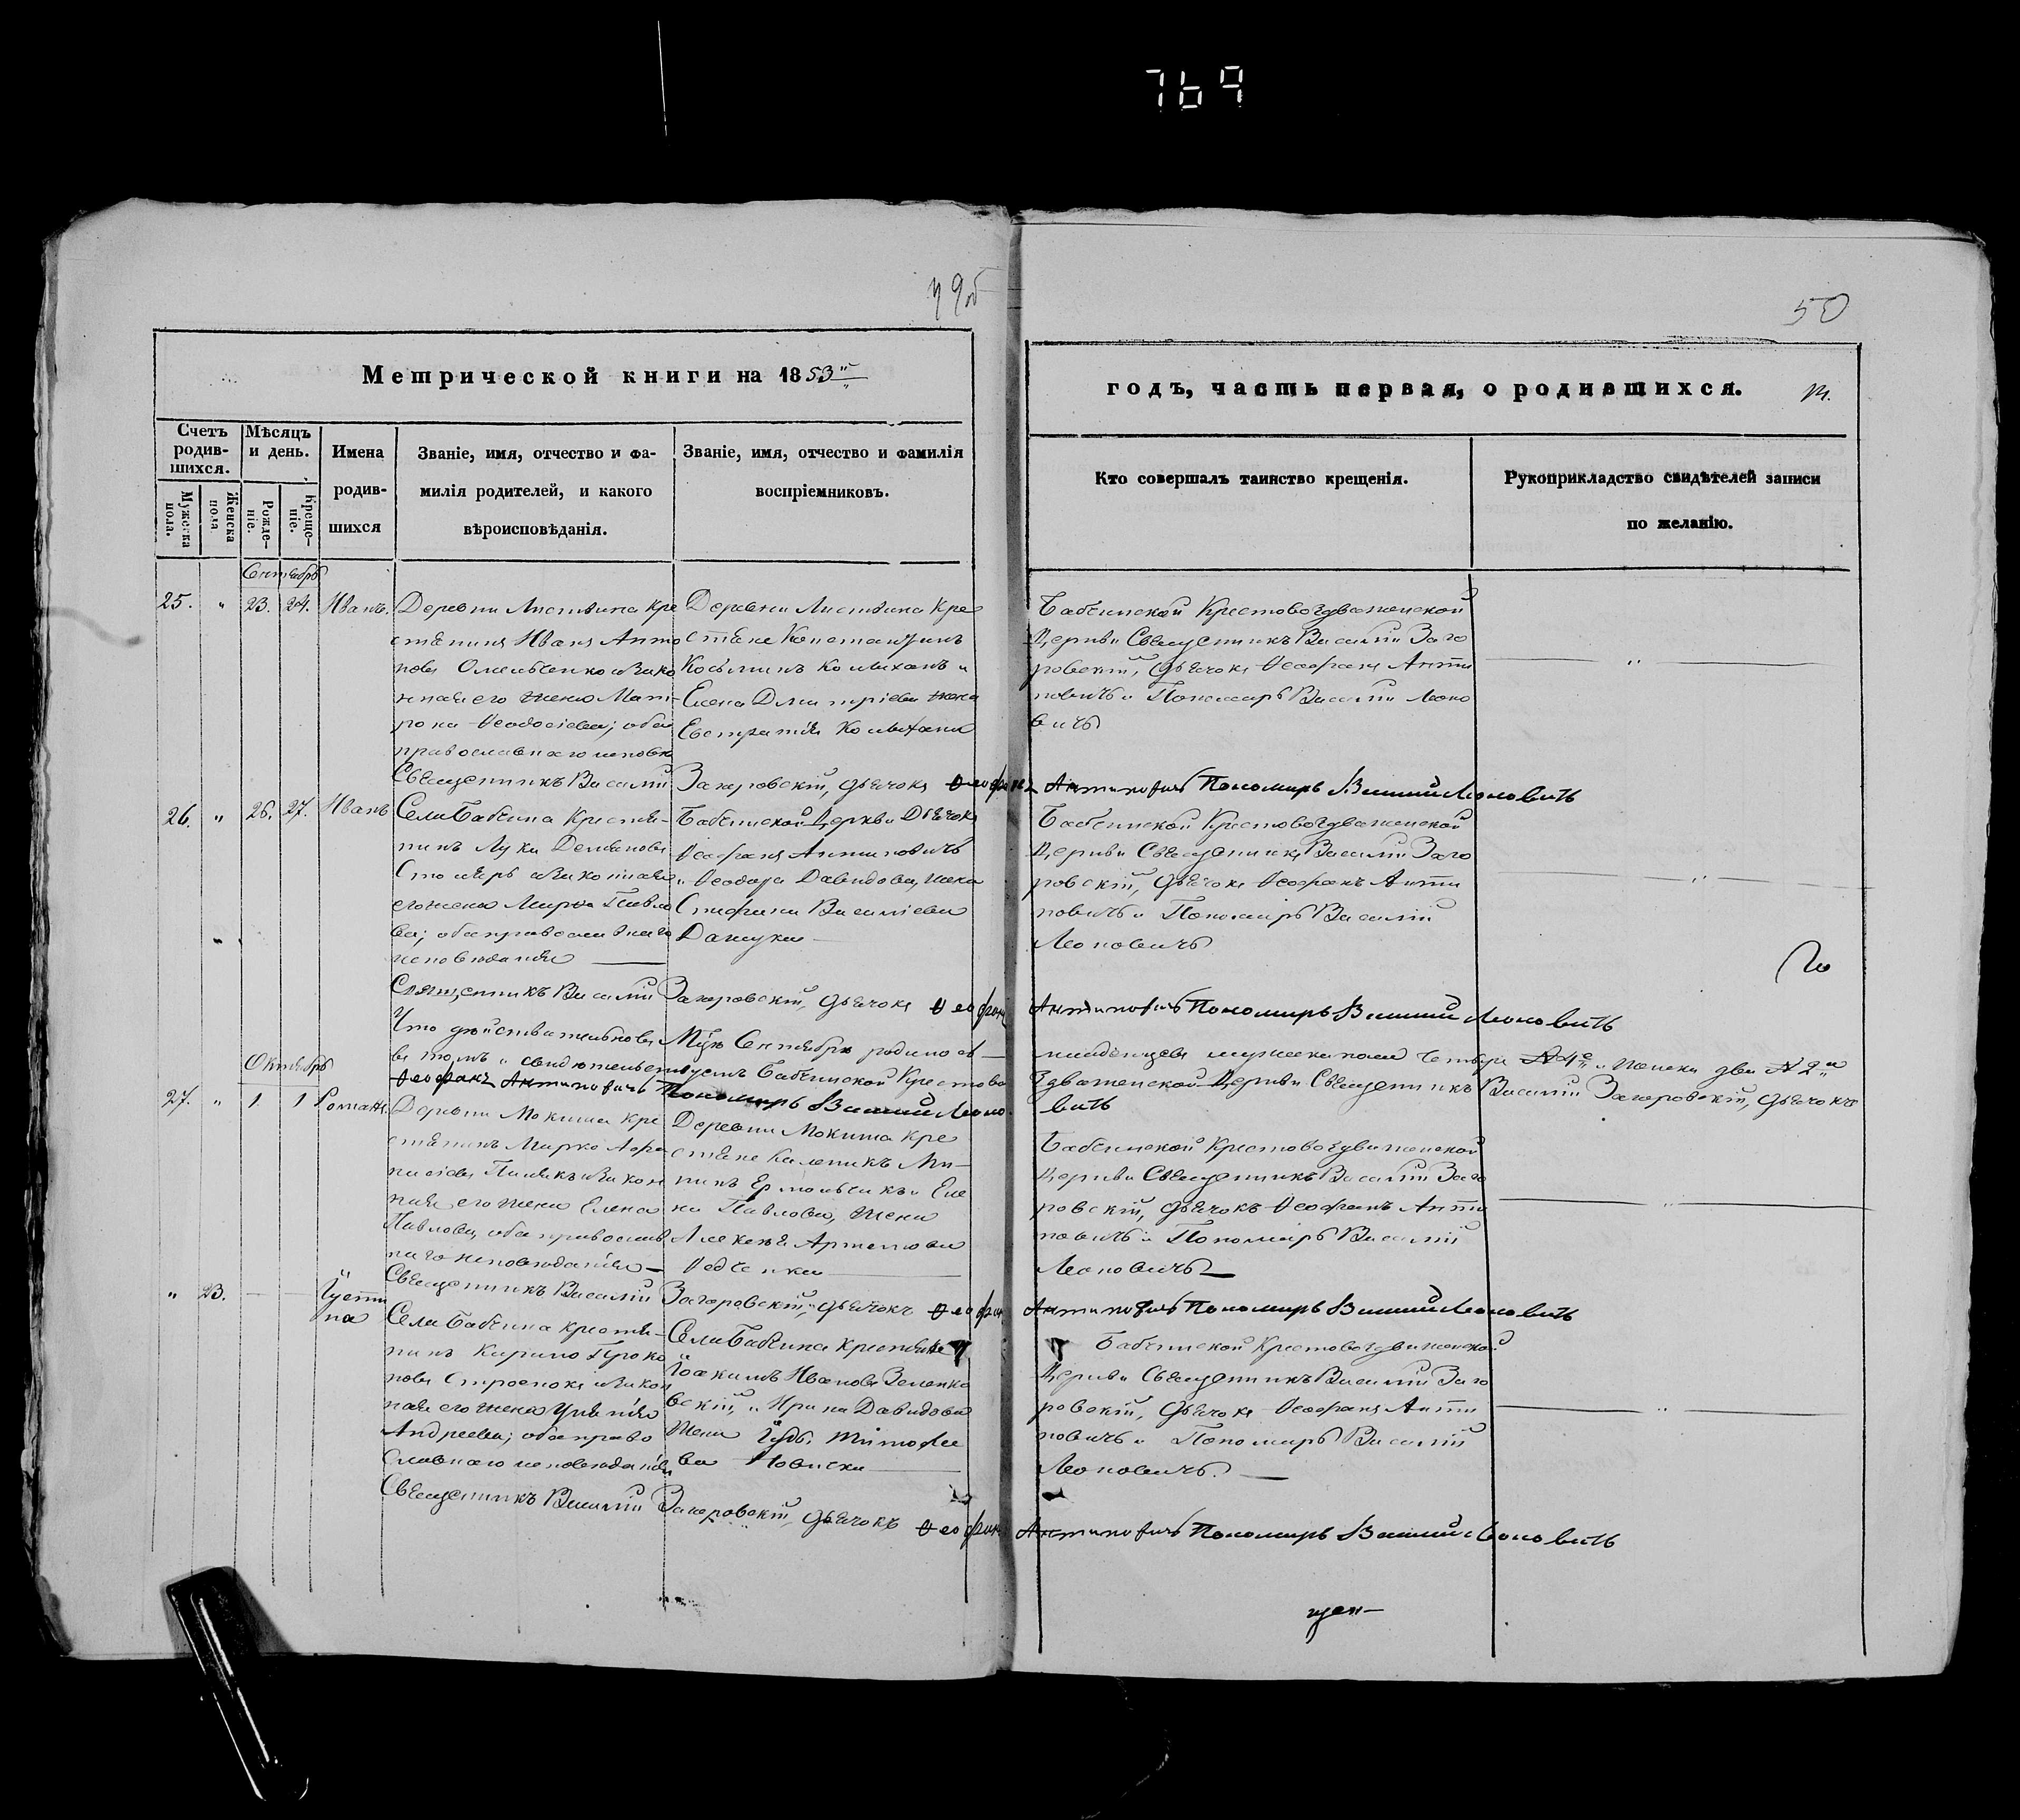 769
49об
50
Метрической книги на 1853й
годъ, часть первая, о родившихся.
Счетъ родив-
шихся.
Мѣсяцъ
и день.
Имена
родив-
шихся
Званіе, имя, отчество и фа-
милія родителей, и какого
вѣроисповѣданія.
Званіе, имя, отчество и фамилія
воспріемниковъ.
Кто совершалъ таинство крещенія.
Рукоприкладство свидѣтелей записи
по желанію.
Мужеска
пола.
Женска
пола
Рожде-
ніе.
Креще-
ніе.
Сентябрь
25. " 23. 24. Иванъ.
Деревни Листвина Кре
стянинъ Иванъ Анто
новъ Омельченко и зако
нная его жена Мат-
рона Ѳеодосіева; оба
православнаго исповѣ
Деревни Листвина Кре
стяне Константинъ
Косьминъ Колыханъ и
Елена Дмитріева жена
Евстратія Колыхана
Бабчинской Крестовоздвиженской
Церкви Священникъ Василій Заго
ровскій, Дьячокъ Ѳеофанъ Анти
повичъ и Пономарь Василій Леоно
вичъ
Священникъ Василій Загоровскій, Дьячокъ Ѳеофанъ Антиповичъ Пономарь Василий Леоновичъ
26. " 26. 27. Иванъ
Села Бабчина Крестья-
нинъ Лука Демьяновъ
Столяръ и законная
его жена Марфа Павло
ва; оба православнаго
исповѣданія
Бабчинской Церкви Дьячокъ
Ѳеофанъ Антиповичъ
и Ѳеодора Давидова, жена
Стефана Василіева
Дашука
Бабчинской Крестовоздвиженской
Церкви Священникъ Василій Заго
ровскій, Дьячокъ Ѳеофанъ Анти
повичъ и Пономарь Василій
Леоновичъ
Священникъ Василій Загоровскій, Дьячокъ Ѳеофанъ Антиповичъ Пономарь Василий Леоновичъ
Что дѣйствительно въ Мцѣ Сентябрѣ родилось младенцевъ мужеска пола четыре № 4е и женска два № 2а
въ томъ и свидѣтельствуемъ Бабчинской Крестово
здвиженской Церкви Священникъ Василій Загоровскій, Дьячокъ
Ѳеофанъ Антиповичъ Пономарь Василий Леоно
вичъ
Октябрь
27. " 1. 1 Романъ.
Деревни Мокиша Кре
стянинъ Марко Афа
насіевъ и закон
ная его жена Елена
Павлова, оба православ
наго исповѣданія
Деревни Мокиша Кре
стяне Каленикъ Ми-
нинъ Ермольчикъ и Еле
на Павлова, жена
Алексѣя Артемова
Ѳедченка
Бабчинской Крестовоздвиженской
Церкви Священникъ Василій Заго
ровскій, Дьячокъ Ѳеофанъ Анти
повичъ и Пономарь Василій
Леоновичъ
Священникъ Василій Загоровскій, Дьячокъ Ѳеофанъ Антиповичъ Пономарь Василий Леоновичъ
" 23. — — Іусти
на
Села Бабчина крестья-
нинъ Кирило Проко
повъ и закон
ная его жена
Андреева; оба право
славнаго исповѣданія
Села Бабчина Крестьяне
Іоакимъ Ивановъ Зеленко
вскій, и Ирина Давидова
жена Тимофее
ва
Бабчинской Крестовоздвиженской
Церкви Священникъ Василій Заго
ровскій, Дьячокъ Ѳеофанъ Анти
повичъ и Пономарь Василій
Леоновичъ.
Священникъ Василій Загоровскій, Дьячокъ Ѳеофанъ Антиповичъ Пономарь Василий Леоновичъ
щен-